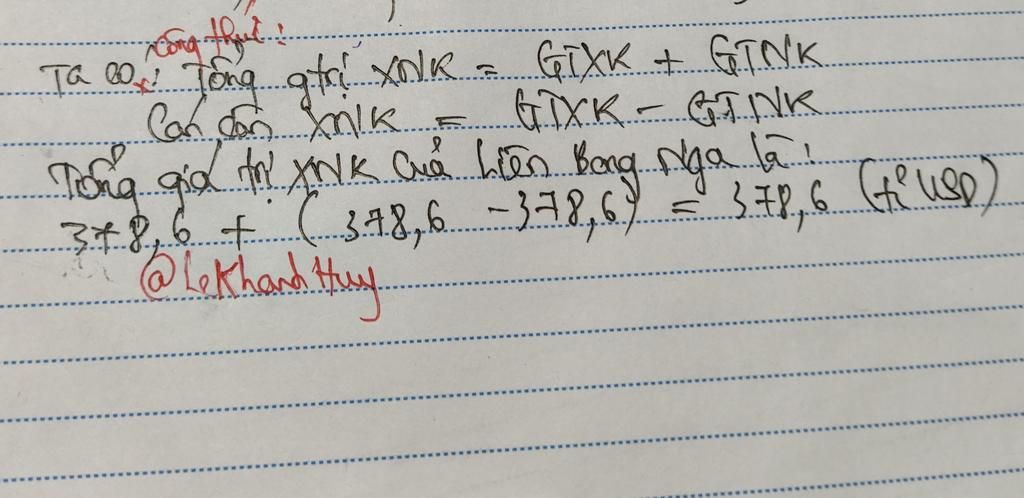 công thức:
Ta có: Tổng gtrị XNK = GTXK + GTNK
Cán cân XNK = GTXK - GTNK
Tổng giá trị XNK của Liên Bang Nga là:
378,6 + (378,6 - 378,6) = 378,6 (tỉ USD)
@LeKhanhHuy